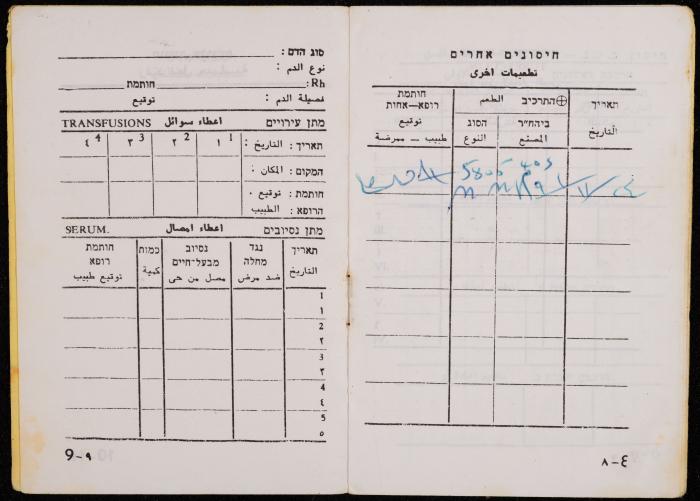 חיסונים אחרים
تطعيمات اخرى
תאריך
التاريخ
התרכיב الطعم
ביהח"ר
المصنع
הסוג
النوع
חותמת
רופא—אחות
توقيع
طبيب — ممرضة
5805
٨-
סוג הדם :
نوع الدم :
Rh: חותמת
فصيلة الدم : توقيع
מתן עירויים اعطاء سوائل TRANSFUSIONS
תאריך : التاريخ : 1 ١ 2 ٢ 3 ٣ 4 ٤
המקום : المكان :
חותמת : توقيع .
הרופא : الطبيب
מתן נסיובים اعطاء امصال SERUM.
תאריך
التاريخ
נגד
מחלה
ضد مرض
נסיוב
מבעל-חיים
مصل من حى
כמות
كمية
חותמת
רופא
توقيع طبيب
1
١
2
٢
3
٣
4
٤
5
٥
9-٩